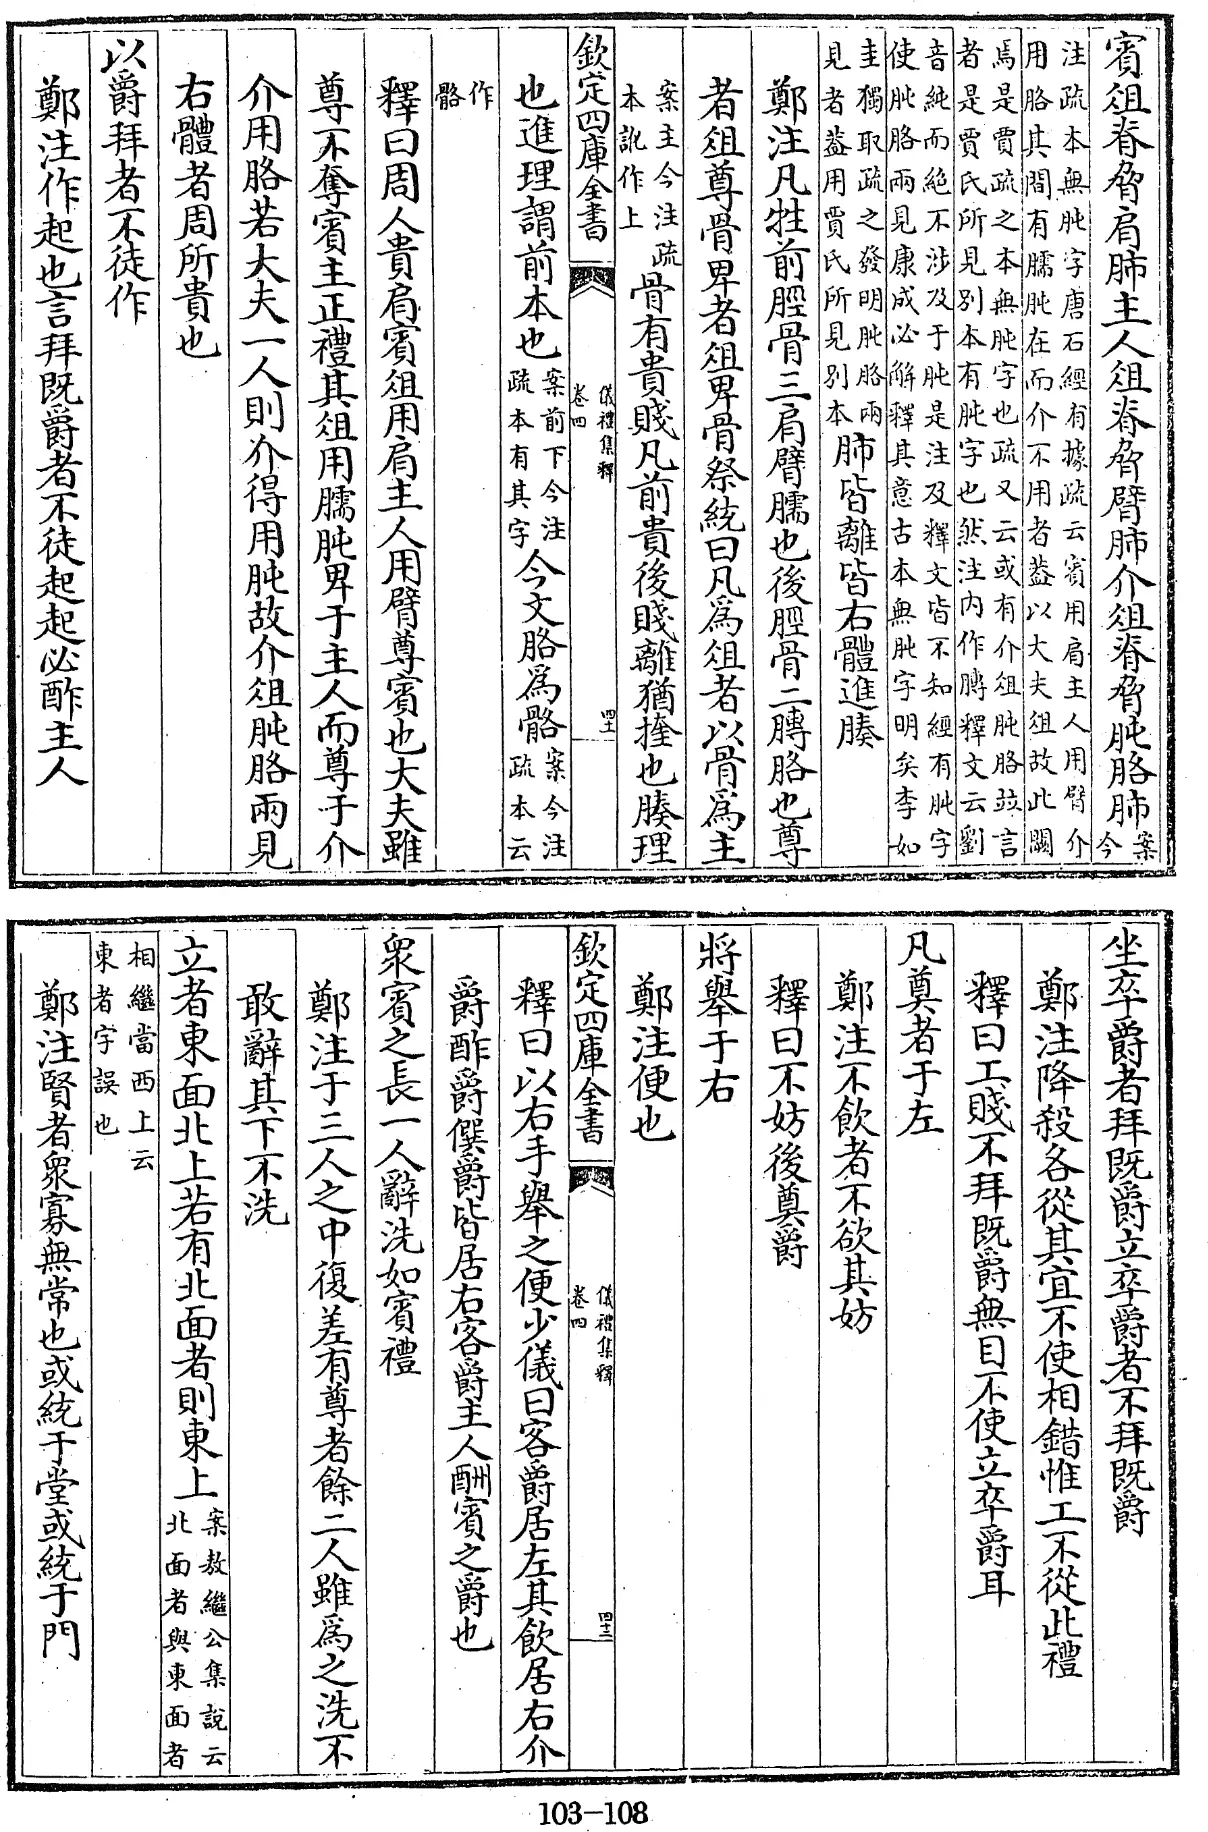 賓俎脊脅肩肺主人俎脊脅臂肺介俎脊脅肫胳肺案今
注疏本無肫字唐石經有據疏云賓用肩主人用臂介
用胳其間有臑肫在而介不用者蓋以大夫俎故此闕
焉是賈疏之本無肫字也疏又云或有介俎肫胳竝言
者是賈氏所見別本有肫字也然注內作膊釋文云劉
音純而絶不涉及于肫是注及釋文皆不知經有肫字
使肫胳兩見康成必解釋其意古本無肫字明矣李如
圭獨取疏之發明肫胳兩見者蓋用賈氏所見別本肺皆離皆右體進腠
鄭注凡牲前脛骨三肩臂臑也後脛骨二膊胳也尊
者俎尊骨卑者俎卑骨祭統曰凡為俎者以骨為主
案主今注疏本訛作上骨有貴賤凡前貴後賤離猶㨒也腠理
欽定四庫全書
儀禮集釋
卷四
四十一
也進理謂前本也案前下今注疏本有其字今文胳為骼案今注疏本云
作骼
釋曰周人貴肩賓俎用肩主人用臂尊賓也大夫雖
尊不奪賓主正禮其俎用臑肫卑于主人而尊于介
介用胳若大夫一人則介得用肫故介俎肫胳兩見
右體者周所貴也
以爵拜者不徒作
鄭注作起也言拜既爵者不徒起起必酢主人
坐卒爵者拜既爵立卒爵者不拜既爵
鄭注降殺各從其宜不使相錯惟工不從此禮
釋曰工賤不拜既爵無目不使立卒爵耳
凡奠者于左
鄭注不飲者不欲其妨
釋曰不妨後奠爵
將舉于右
鄭注便也
欽定四庫全書
儀禮集釋
卷四
四十二
釋曰以右手舉之便少儀曰客爵居左其飲居右介
爵酢爵僎爵皆居右客爵主人酬賓之爵也
眾賓之長一人辭洗如賓禮
鄭注于三人之中復差有尊者餘二人雖為之洗不
敢辭其下不洗
立者東面北上若有北面者則東上案敖繼公集說云北面者與東面者
相繼當西上云東者字誤也
鄭注賢者眾寡無常也或統于堂或統于門
103-108